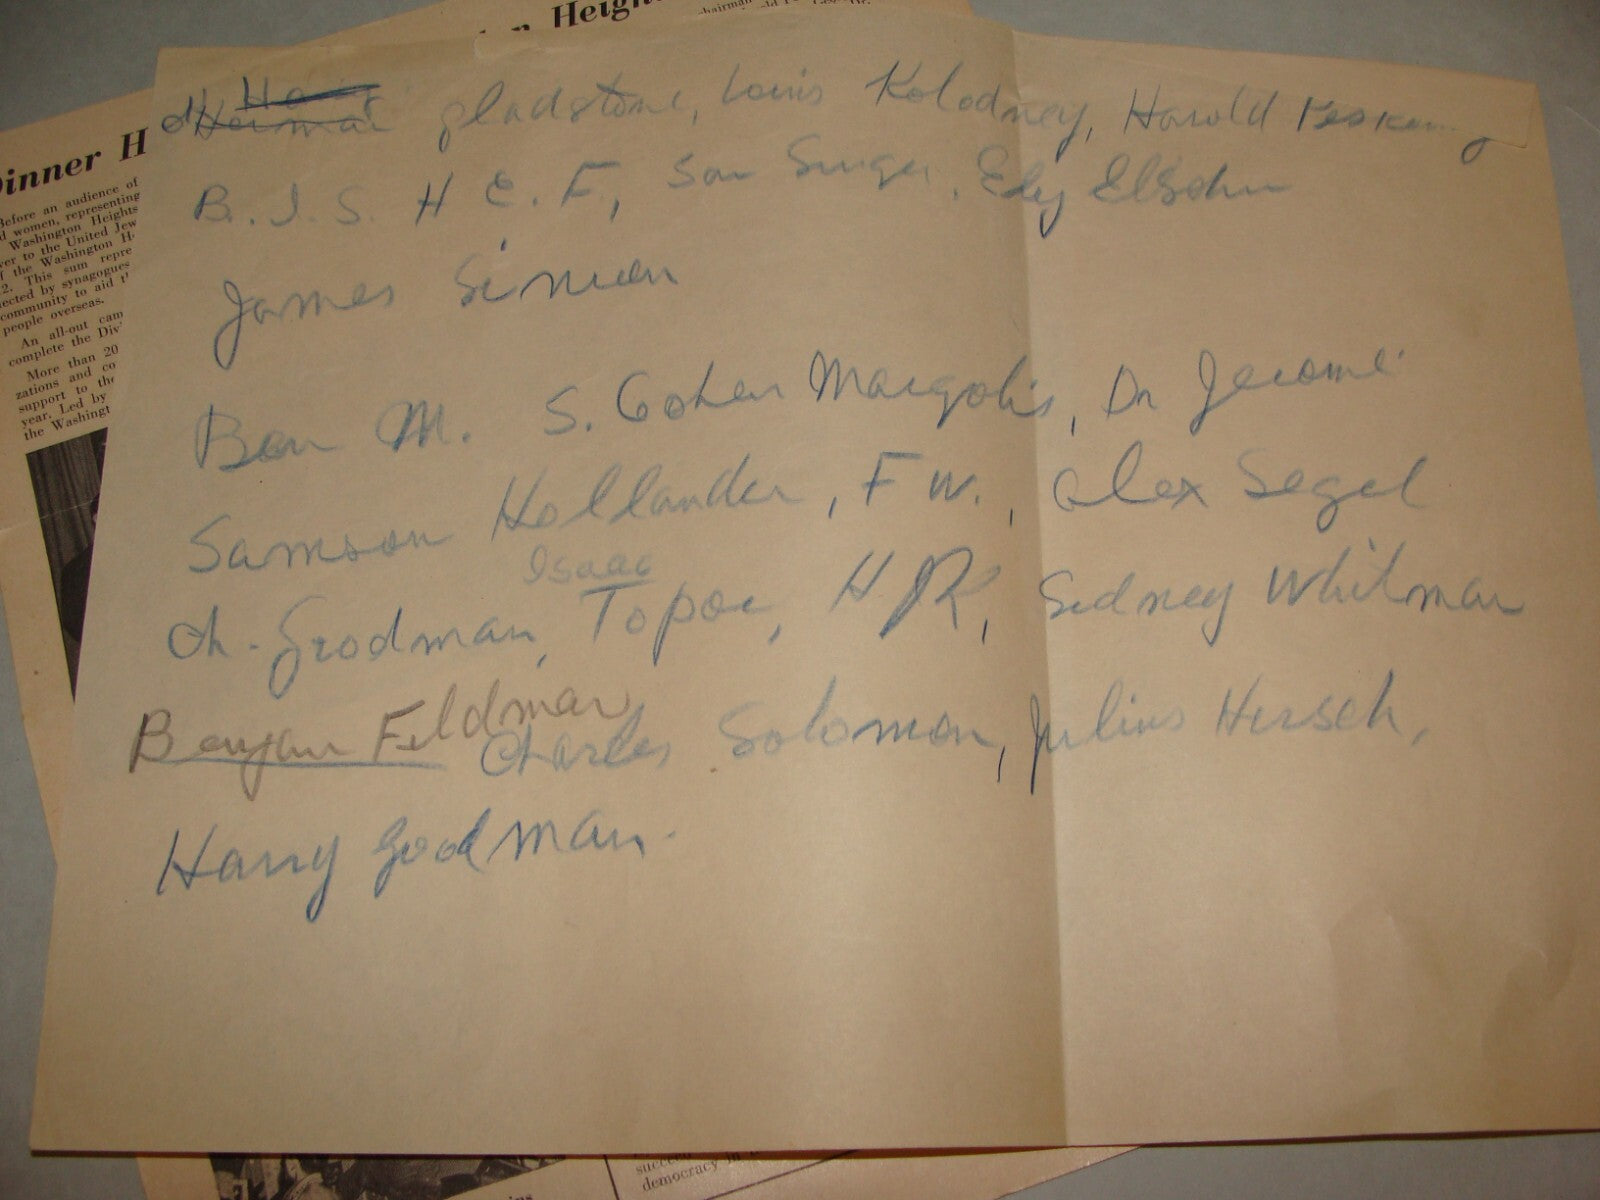 n Heigh
Dinner H
Before an audience of
d women, representing
Washington Heights
ver to the United Jew
f the Washington H-
2. This sum repre
ected by synagogues
community to aid t
people overseas.
An all-out cam
complete the Div
More than 20
zations and co
support to the
year. Led by
the Washingt
Herman gladstone, Louis Kolodney, Harold
B. J. S. H E. F, Sam Singer, Ely Elsohn
James Simon
Ben M. S. Cohen Margolis, Dr Jerome
Samson Hollander, F W., Alex Segel
Isaac
Ch. Grodman, Topoe, H R, Sidney Whitman
Benjam Feldman
Charles Solomon, Julius Hersch,
Harry goodman.
success
democracy in